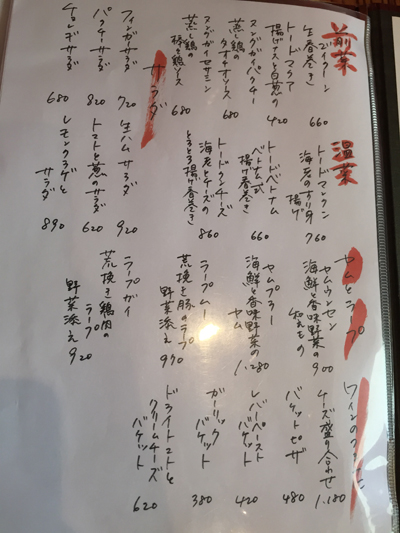 前菜
ゴイクーン
生春巻き
660
トートマクア
揚げナスと白葱の
420
ヌングガイパクチー
蒸し鶏の
タオチオソース
680
ヌングガイセサミン
蒸し鶏の
680
サラダ
フィッガーサラダ
720
パクチーサラダ
820
チョレギサラダ
680
生ハムサラダ
920
トマトと葱のサラダ
620
レモンクラゲと
サラダ
890
温菜
トートマンクン
海老のすり身
揚げ
760
トートベトナム
ベトナム式
揚げ春巻き
660
トードクンチーズ
海老とチーズの
とろとろ揚げ春巻き
860
ヤムとラープ
ヤムウンセン
海鮮と香味野菜の
和えもの
900
ヤムプラー
海鮮と香味野菜の
ヤム
1,280
ラープムー
荒挽き豚のラープ
野菜添え
990
ラープガイ
荒挽き鶏肉の
ラープ
野菜添え
920
ワインの
チーズ盛り合わせ
1,180
バケットピザ
480
レバーペースト
バケット
420
ガーリック
バケット
380
ドライトマトと
クリームチーズ
バケット
620